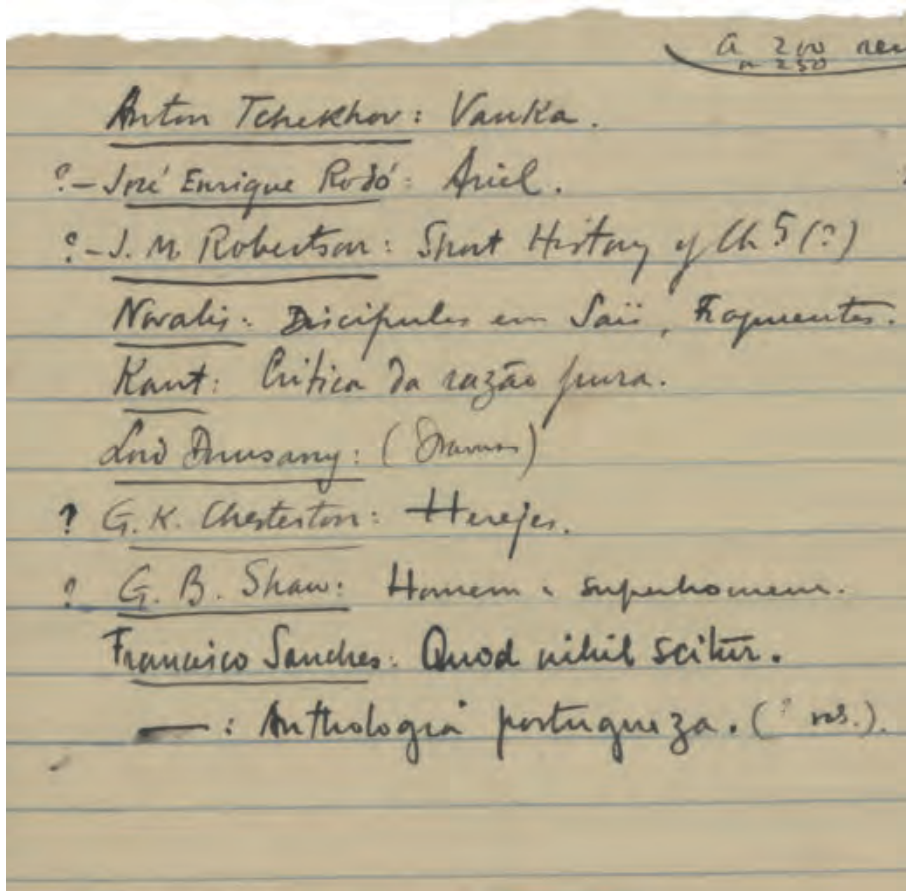 a 200 reis
a 250
Anton Tchekhov: Vanka.
?- José Enrique Rodó: Ariel.
?- J. M. Robertson: Short History of Ch 5 (?)
Novalis: Discipulos em Saïs, Fragmentos.
Kant: Critica da razão pura.
Lord Dunsany: (Dramas)
? G. K. Chesterton: Herejes.
? G. B. Shaw: Homem e superhomem.
Francisco Sanches: Quod nihil scitur.
—: Anthologia portugueza. (? vols.)